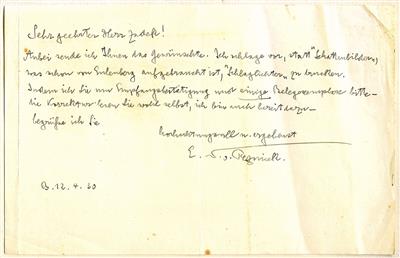 Sehr geehrter Herr
Anbei sende ich Ihnen das Gewünschte. Ich schlage vor, statt "Schattenbilder",
was schon von Eulenberg aufgebraucht ist, "Schlaglichter" zu
Indem ich Sie um Empfangsbestätigung und einige Belegexemplare bitte -
die Korrektur lesen Sie wohl selbst, ich bin auch bereit dazu -
begrüße ich Sie
hochachtungsvoll u. ergebenst
E. N. v. Reznicek
B. 12. 4. 20